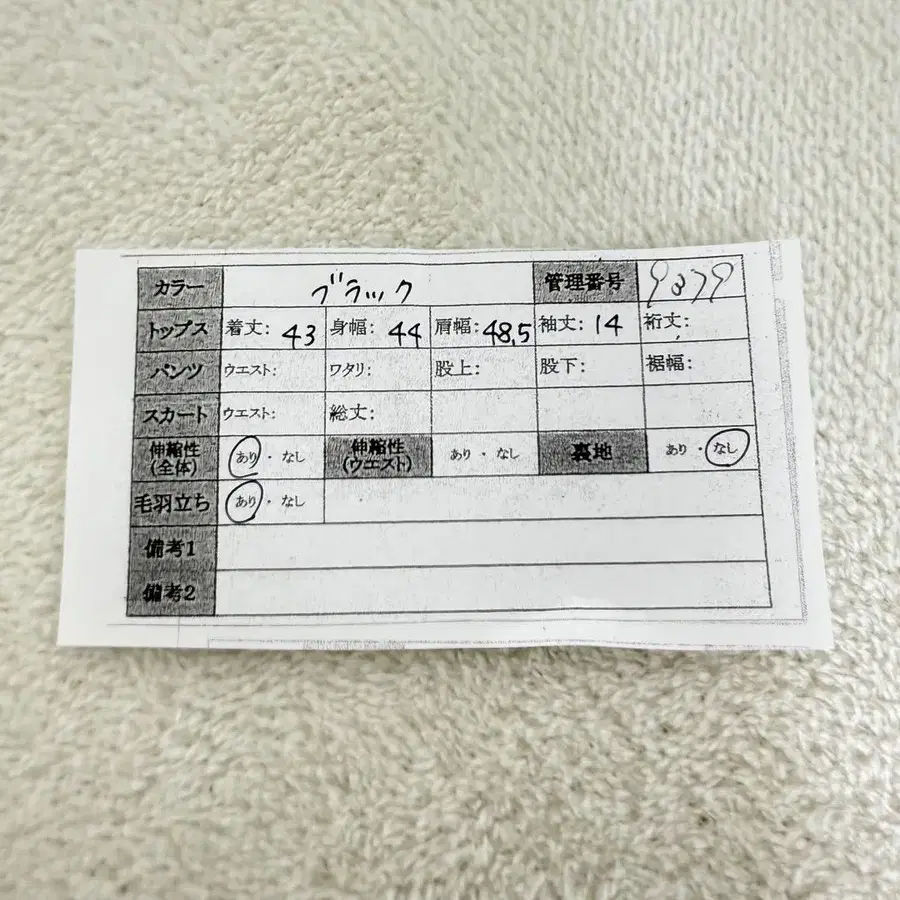 カラー ブラック 管理番号 9379
トップス 着丈: 43 身幅: 44 肩幅: 48.5 袖丈: 14 裄丈:
パンツ ウエスト: ワタリ: 股上: 股下: 裾幅:
スカート ウエスト: 総丈:
伸縮性(全体) あり・なし 伸縮性(ウエスト) あり・なし 裏地 あり・なし
毛羽立ち あり・なし
備考1
備考2